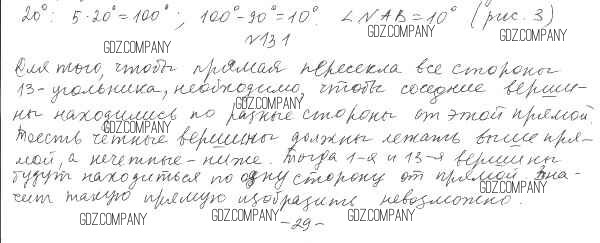 20°: 5·20°=100°; 100°-90°=10°. ∠NAB=10° (рис. 3)
GDZ.COMPANY GDZ.COMPANY
№131
Для того, чтобы прямая пересекла все стороны
13-угольника, необходимо, чтобы соседние верши-
GDZ.COMPANY
ны находились по разные стороны от этой прямой.
GDZ.COMPANY
Тоесть чётные вершины должны лежать выше пря-
мой, а нечетные - ниже. Тогда 1-я и 13-я вершины
будут находиться по одну сторону от прямой. Зна-
GDZ.COMPANY GDZ.COMPANY
чит такую прямую изобразить невозможно.
GDZ.COMPANY GDZ.COMPANY GDZ.COMPANY
-29-